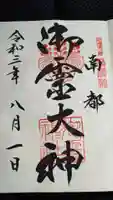 南都
御靈大神
令和三年
八月一日